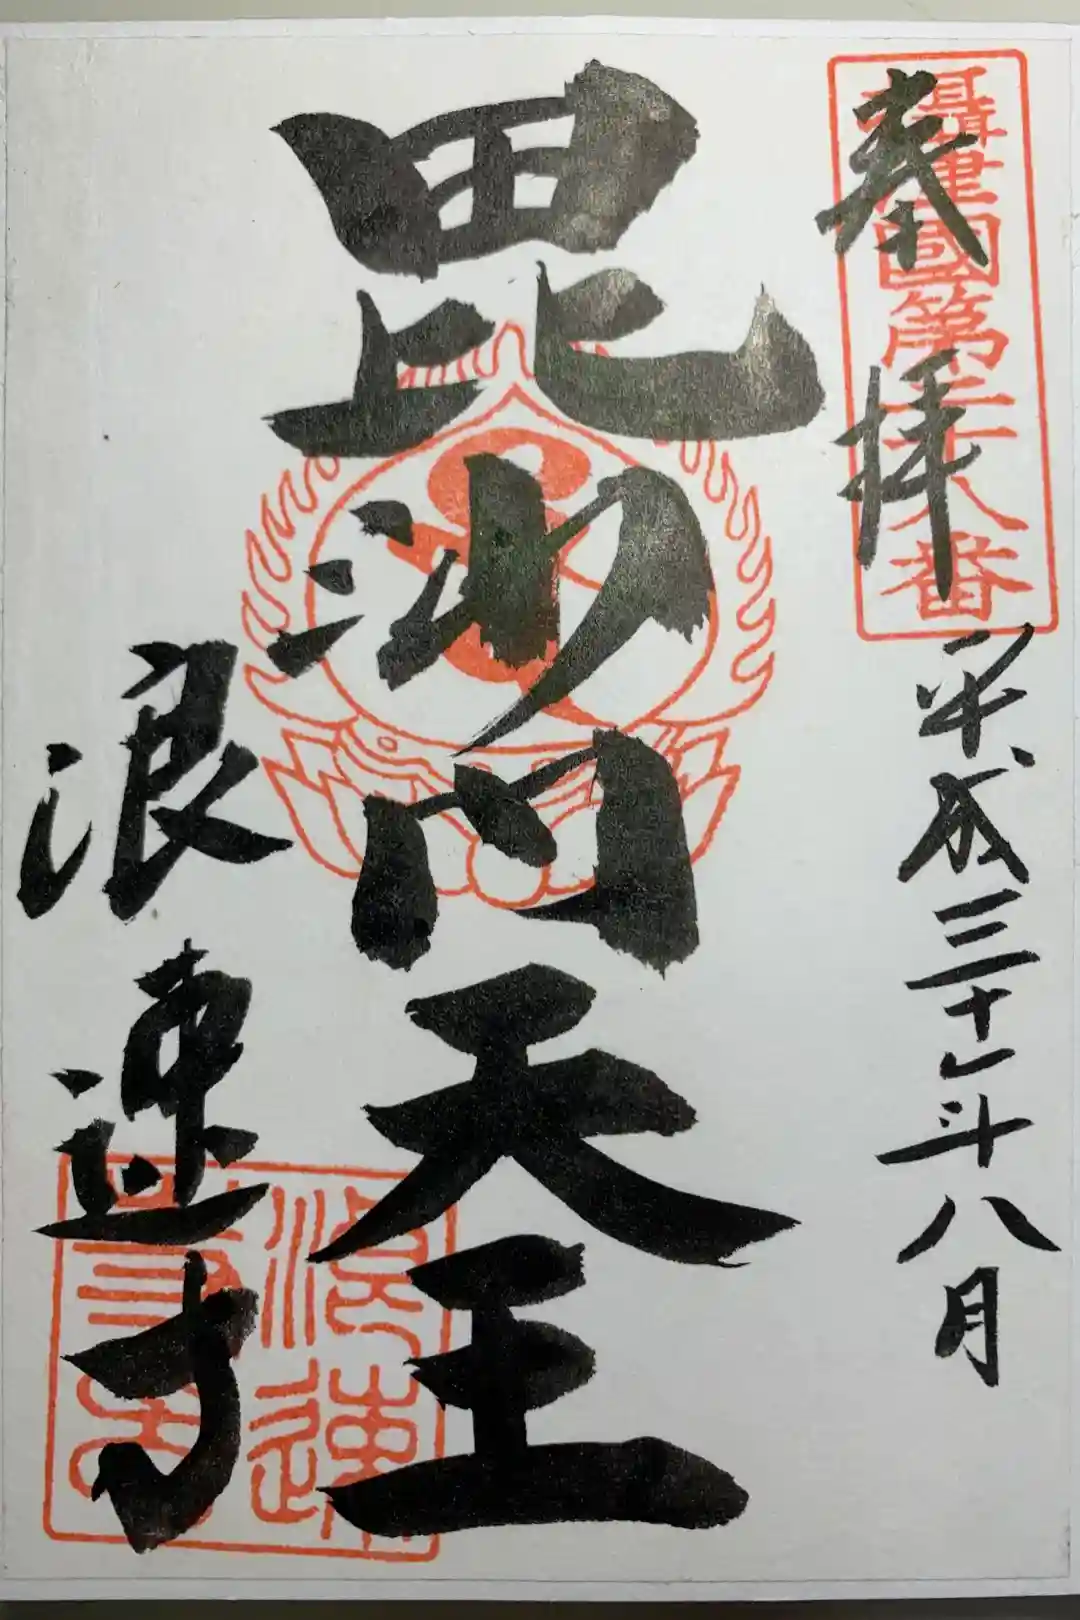 攝津國第十八番
奉拝
平成三十年八月
毘沙門天王
浪速寺
浪速寺